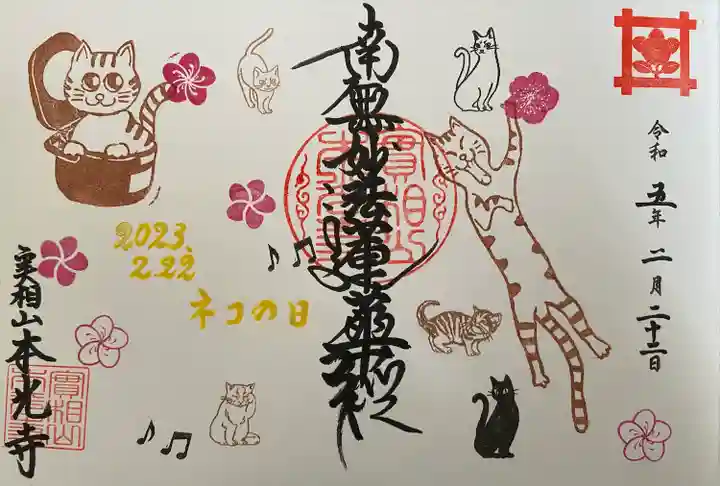 令和五年二月二十二日
南無妙法蓮華経
2023.
2.22
ネコの日
實相山本光寺
實相山